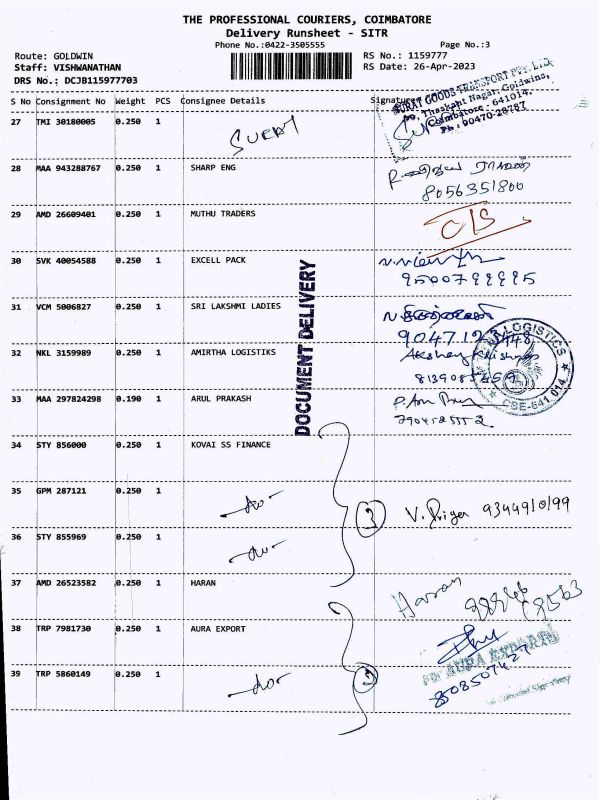 THE PROFESSIONAL COURIERS, COIMBATORE
Delivery Runsheet - SITR
Phone No.:0422-3505555 Page No.:3
Route: GOLDWIN RS No.: 1159777
Staff: VISHWANATHAN RS Date: 26-Apr-2023
DRS No.: DCJB115977703
S No Consignment No Weight PCS Consignee Details Signature
SURAT GOODS TRANSPORT PVT. LTD.
Thaskant Nagar, Goldwins,
Coimbatore - 641014.
Ph : 90470-28787
27 TMI 30180005 0.250 1 SURAT
28 MAA 943288767 0.250 1 SHARP ENG
8056351800
29 AMD 26609401 0.250 1 MUTHU TRADERS C/S
30 SVK 40054588 0.250 1 EXCELL PACK
9500799995
DOCUMENT DELIVERY
31 VCM 5006827 0.250 1 SRI LAKSHMI LADIES
LOGISTICS
CBE-641 014
32 NKL 3159989 0.250 1 AMIRTHA LOGISTIKS
33 MAA 297824298 0.190 1 ARUL PRAKASH
34 STY 856000 0.250 1 KOVAI SS FINANCE
35 GPM 287121 0.250 1 -do- 3 V. Priya 9344910199
36 STY 855969 0.250 1 -do-
37 AMD 26523582 0.250 1 HARAN Haran
38 TRP 7981730 0.250 1 AURA EXPORT
For AURA EXPORT
39 TRP 5860149 0.250 1 -do- 2